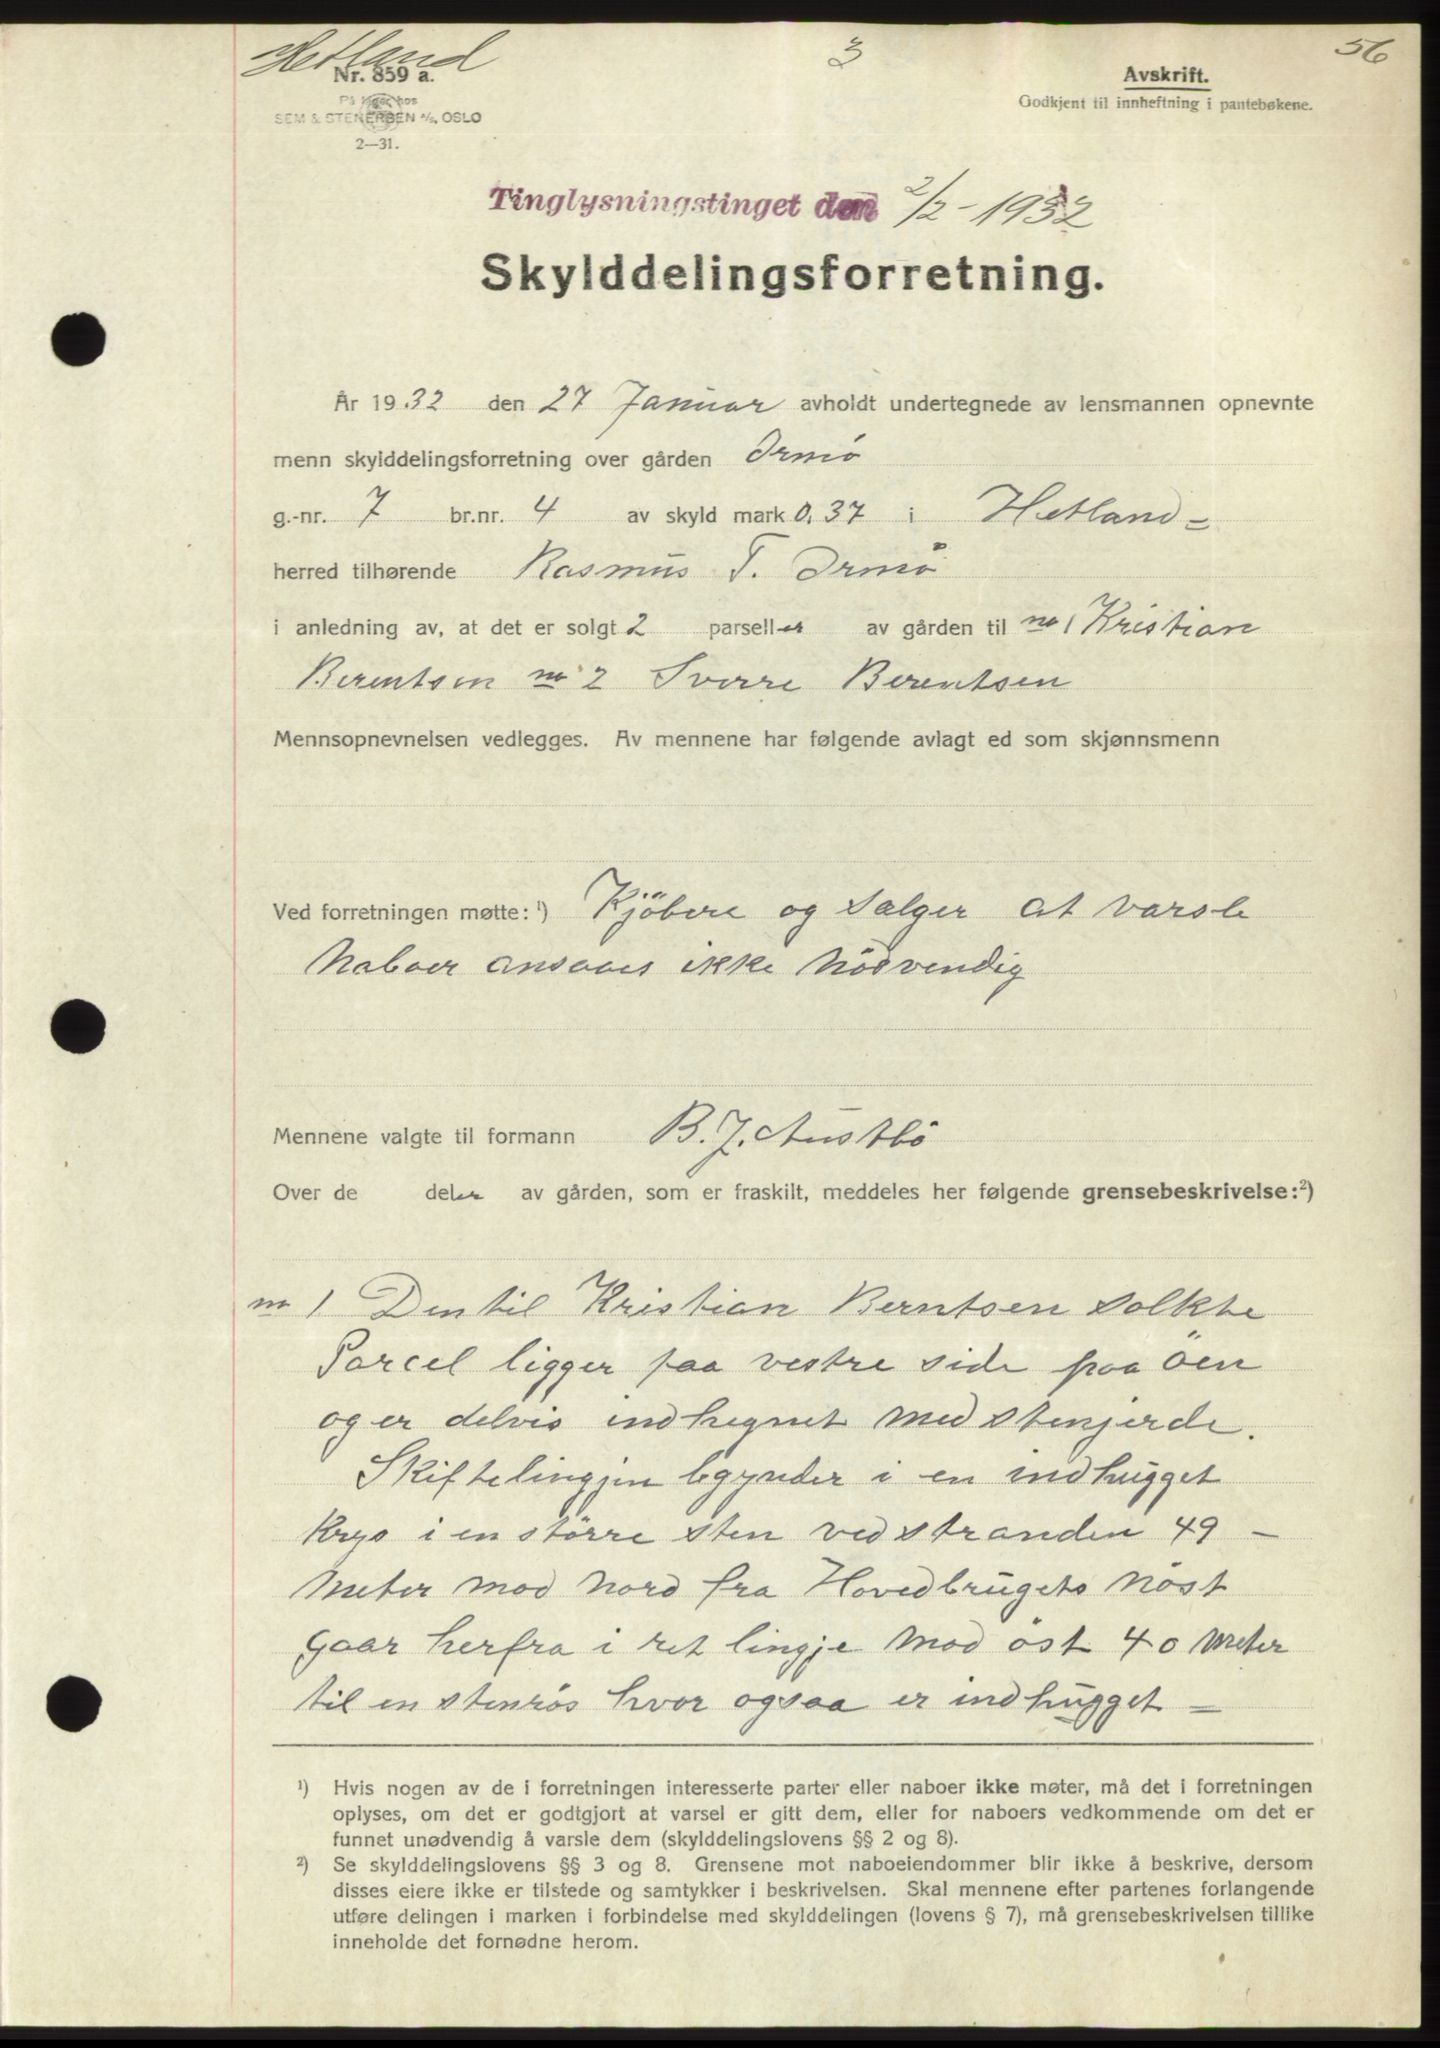 Hetland
3
56
Nr. 859 a.
På lager hos
SEM & STENERSEN A/S, OSLO
2—31.
Avskrift.
Godkjent til innheftning i pantebøkene.
Tinglysningstinget den 2/2-1932
Skylddelingsforretning.
År 1932 den 27 Januar avholdt undertegnede av lensmannen opnevnte
menn skylddelingsforretning over gården Ormö
g.-nr. 7 br.nr. 4 av skyld mark 0,37 i Hetland=
herred tilhørende Rasmus T. Ormö
i anledning av, at det er solgt 2 parseller av gården til no 1 Kristian
Berentsen no 2 Sverre Berentsen
Mennsopnevnelsen vedlegges. Av mennene har følgende avlagt ed som skjønnsmenn
Ved forretningen møtte: ¹) Kjöbere og Sælger at varsle
Naboer ansaaes ikke Nödvendig
Mennene valgte til formann B. J. Austbö
Over de deler av gården, som er fraskilt, meddeles her følgende grensebeskrivelse: ²)
no 1 Den til Kristian Berntsen Solkte
Parcel ligger paa vestre side paa Öen
og er delvis indhegnet med stenjerde.
Skiftelingjen begynder i en indhugget
Krys i en större sten ved stranden 49 –
Meter mod Nord fra Hovedbrugets Nöst
gaar herfra i ret lingje mod öst 40 Meter
til en stenrös hvor ogsaa er indhugget =
¹) Hvis nogen av de i forretningen interesserte parter eller naboer ikke møter, må det i forretningen
oplyses, om det er godtgjort at varsel er gitt dem, eller for naboers vedkommende om det er
funnet unødvendig å varsle dem (skylddelingslovens §§ 2 og 8).
²) Se skylddelingslovens §§ 3 og 8. Grensene mot naboeiendommer blir ikke å beskrive, dersom
disses eiere ikke er tilstede og samtykker i beskrivelsen. Skal mennene efter partenes forlangende
utføre delingen i marken i forbindelse med skylddelingen (lovens § 7), må grensebeskrivelsen tillike
inneholde det fornødne herom.